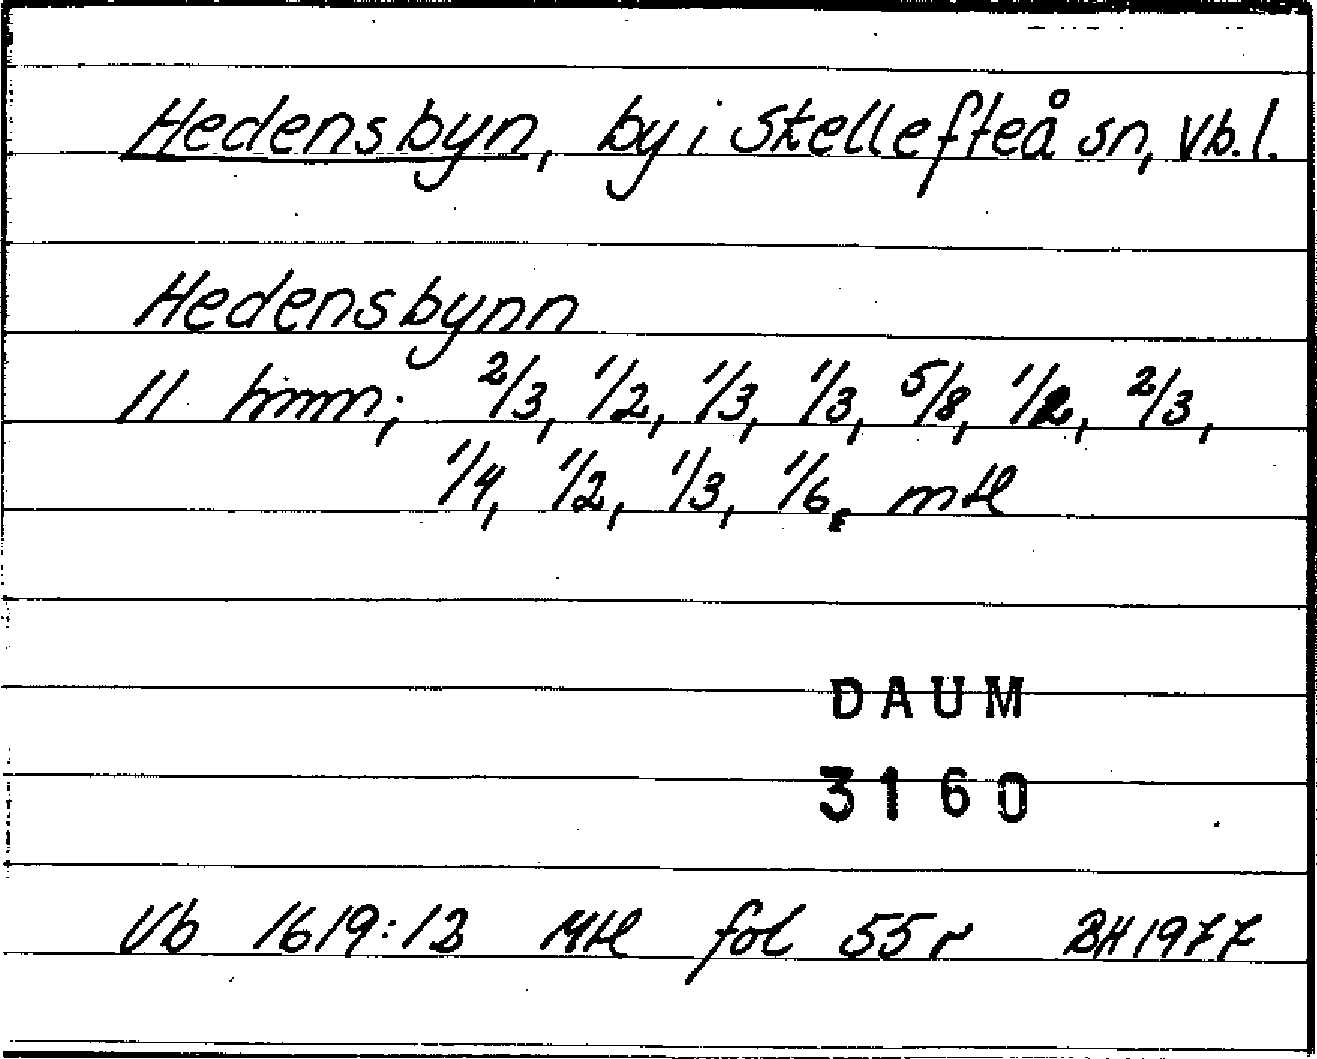 Hedensbyn, by i Skellefteå sn, Vb.l.
Hedensbynn
11 hmn; 2/3, 1/2, 1/3, 1/3, 5/8, 1/2, 2/3,
1/4, 1/2, 1/3, 1/6, mtl
DAUM
3160
Vb 1619:12 Mtl fol 55r BH 1977